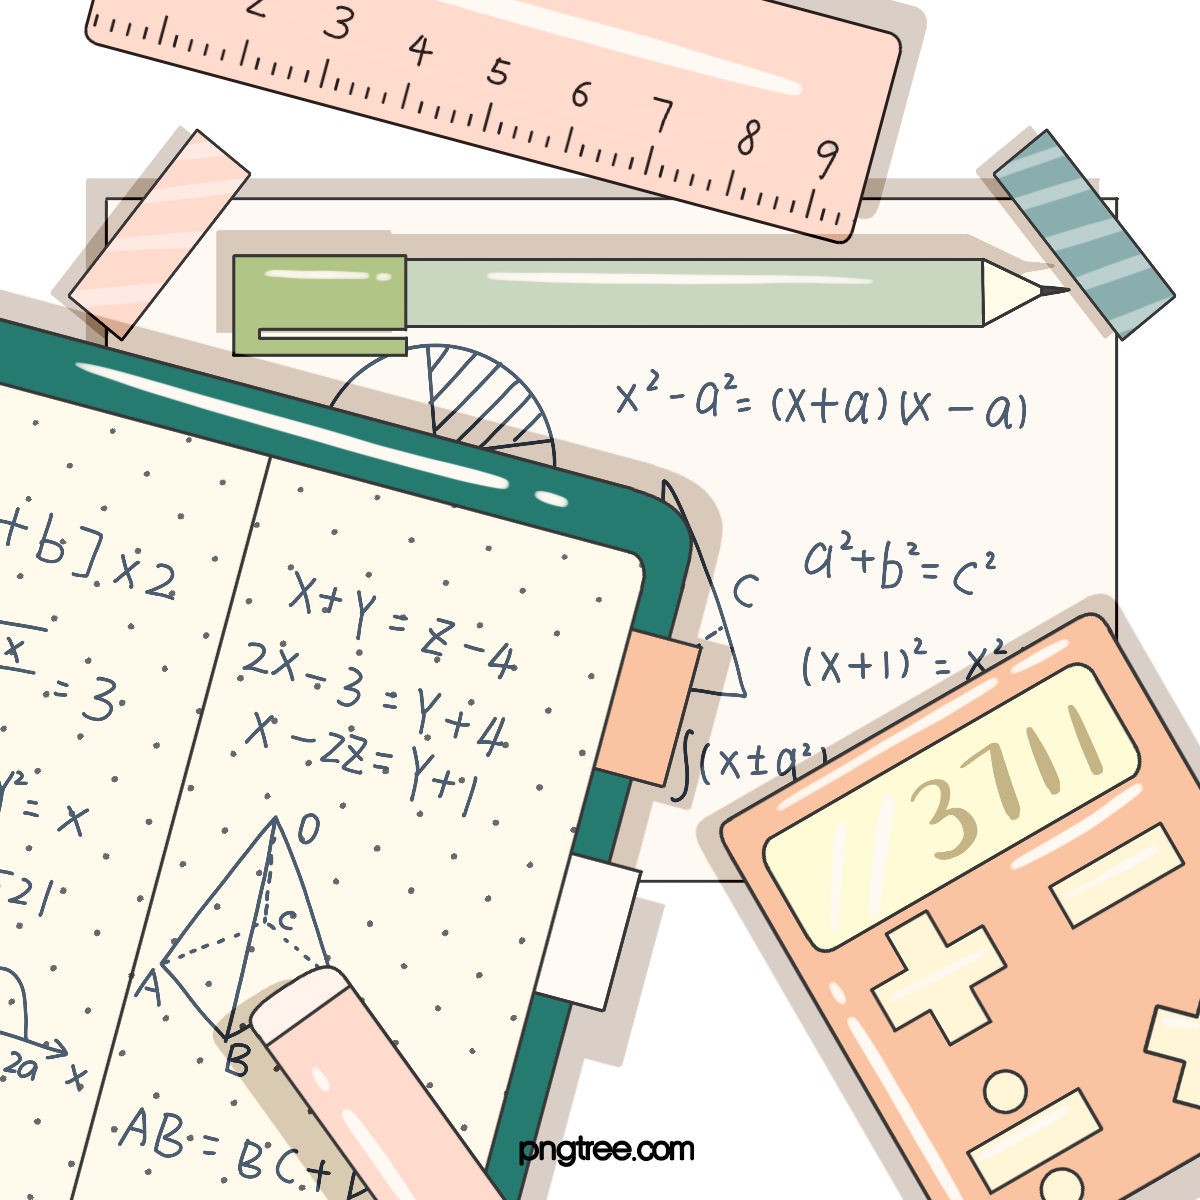 2 3 4 5 6 7 8 9
x²-a²= (x+a)(x-a)
C
a²+b²= c²
(x+1)²= x²
∫(x±a²)
3711
+b]x2
x
=3
Y²=x
21
2a x
X+Y=z-4
2X-3=Y+4
X-2z=Y+1
O
C
A
B
AB=BC+
pngtree.com